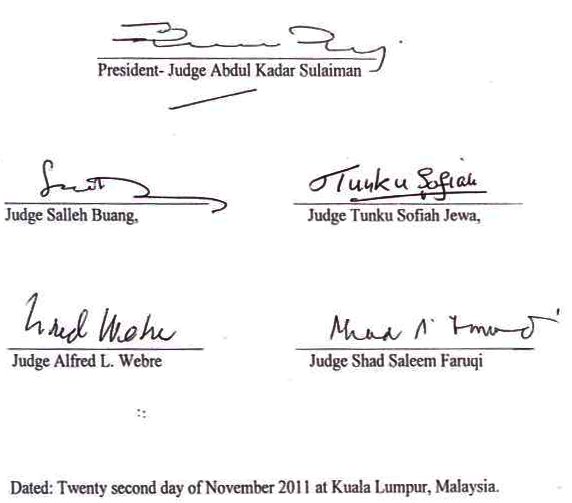 President- Judge Abdul Kadar Sulaiman
Tunku Sofiah
Judge Salleh Buang, Judge Tunku Sofiah Jewa,
Judge Alfred L. Webre Judge Shad Saleem Faruqi
Dated: Twenty second day of November 2011 at Kuala Lumpur, Malaysia.